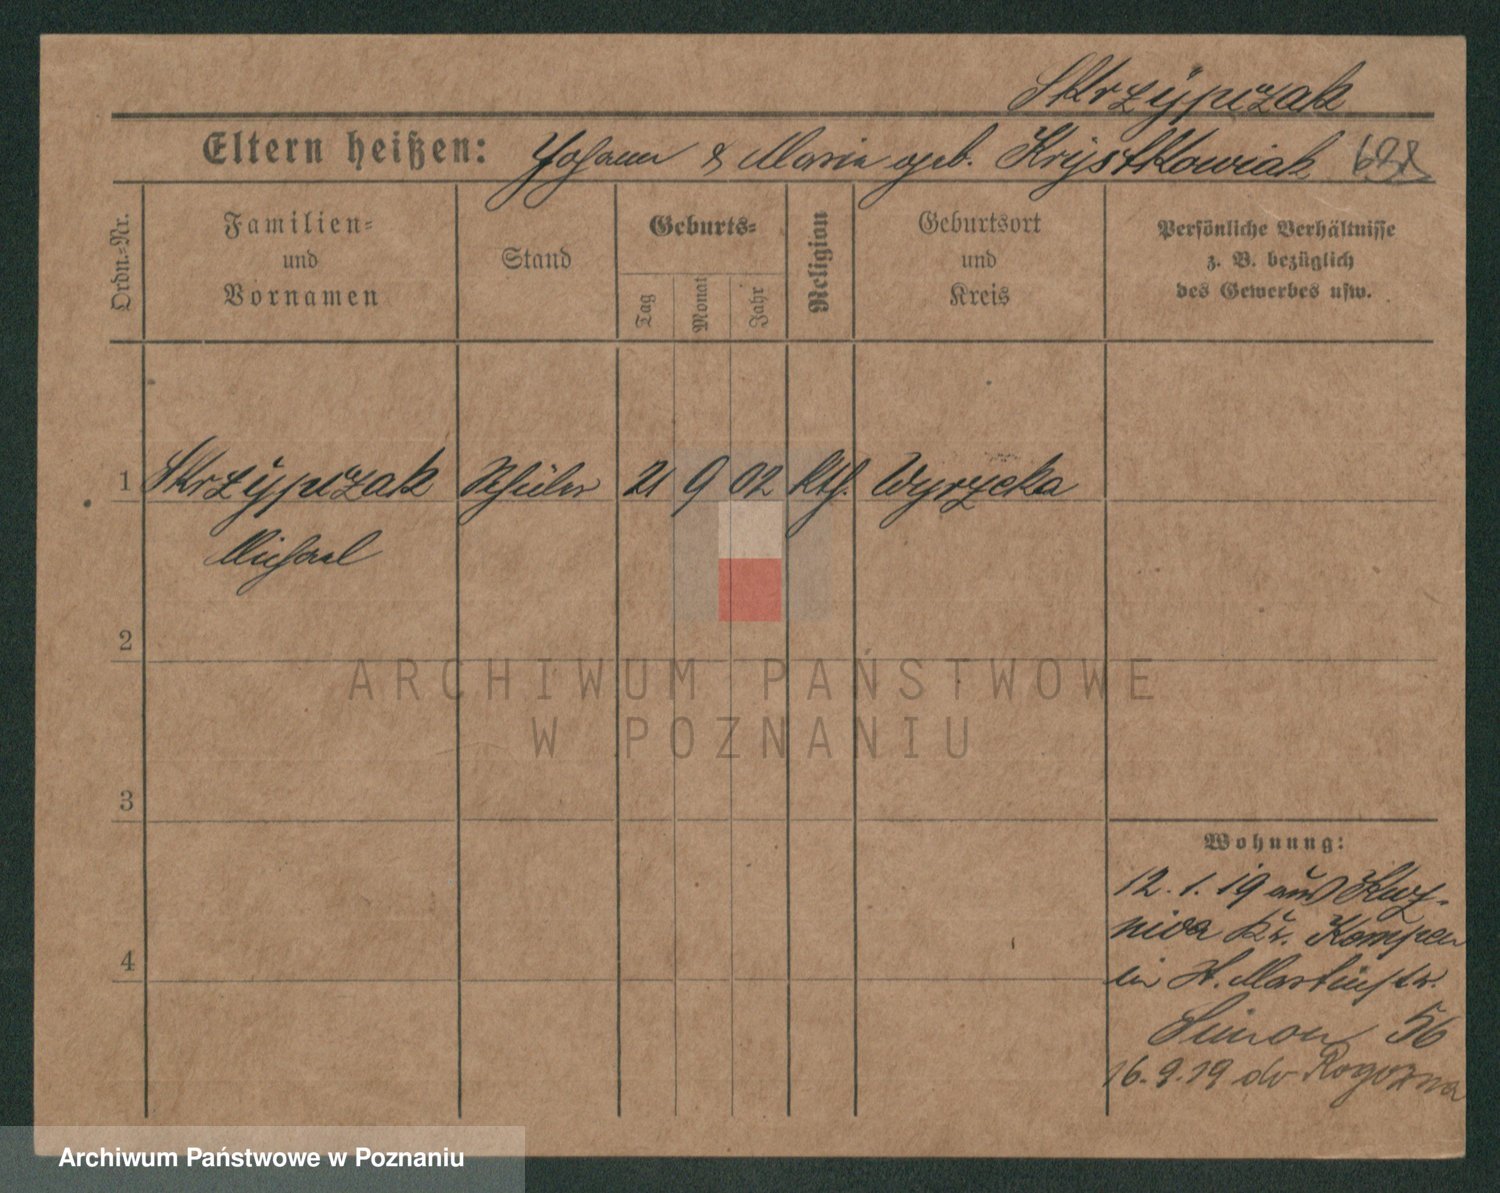 Skrzypczak
Eltern heißen: Johann & Maria geb. Krystkowiak 638
Ordn.-Nr.
Familien-
und
Vornamen
Stand
Geburts-
Tag
Monat
Jahr
Religion
Geburtsort
und
Kreis
Persönliche Verhältnisse
z. B. bezüglich
des Gewerbes usw.
1 Skrzypczak Schüler 21 9 02 kth. Wyrzeka
Michael
2
ARCHIWUM PAŃSTWOWE
W POZNANIU
3
Wohnung:
12.1.19 aus Kuz-
nica Kr. Kempen
in St. Martinstr.
Simon 56
4
16.9.19 do Rogozna
Archiwum Państwowe w Poznaniu